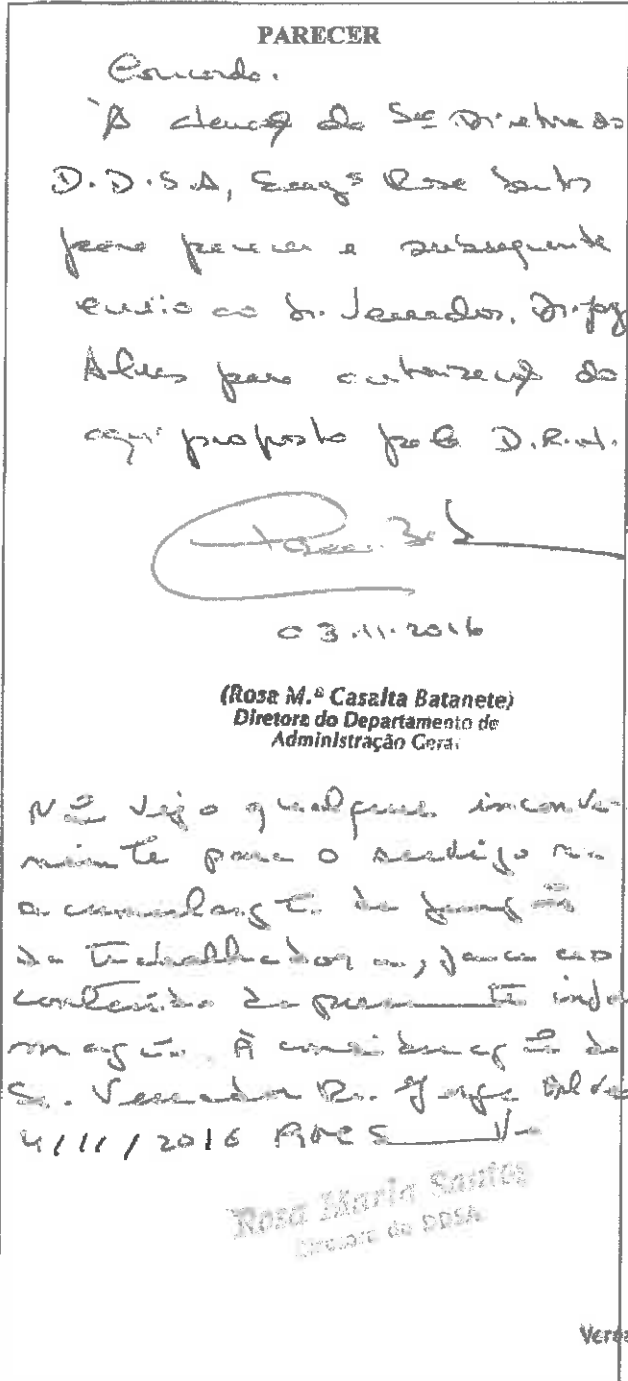 PARECER
Concordo.
À atenção da Srª Diretora do
D.D.S.A, Engª Rosa Santos
para parecer e subsequente
envio ao Sr. Vereador, Dr. Jorge
Alves para autorização do
aqui proposto pela D.R.H.
03.11.2016
(Rosa M.ª Casalta Batanete)
Diretora do Departamento de
Administração Geral
Não vejo qualquer inconve-
niente para o serviço na
acumulação de funções
da trabalhadora, face ao
conteúdo da presente infor
mação. À consideração do
Sr. Vereador Dr. Jorge Alves
4/11/2016
Rosa Maria Santos
Diretora do DDSA